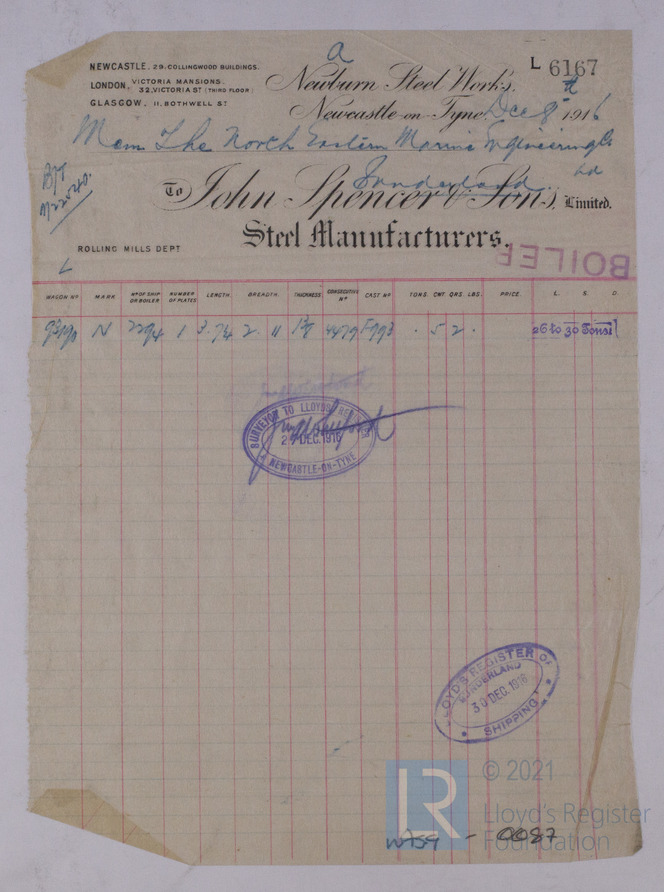 a
NEWCASTLE. 29. COLLINGWOOD BUILDINGS.
LONDON, VICTORIA MANSIONS.
32, VICTORIA ST (THIRD FLOOR)
GLASGOW. 11, BOTHWELL ST
L 6167
Newburn Steel Works,
Newcastle-on-Tyne, Dec 8th 1916
Mess The North Eastern Marine Engineering Co
Ld
Sunderland
To John Spencer & Sons, Limited.
Steel Manufacturers.
ROLLING MILLS DEPT
BOILER
WAGON No. MARK No OF SHIP OR BOILER NUMBER OF PLATES LENGTH. BREADTH. THICKNESS CONSECUTIVE No CAST No TONS. CWT QRS. LBS. PRICE. L. S. D.
N 2294 1 2. 11 4479 . 5 2. 26 to 30 Tons
SURVEYOR TO LLOYDS REGISTER
DEC. 1916
NEWCASTLE-ON-TYNE
LLOYD'S REGISTER OF
SUNDERLAND
30 DEC. 1916
SHIPPING
LR
© 2021
Lloyd's Register
Foundation
W459 - 0087